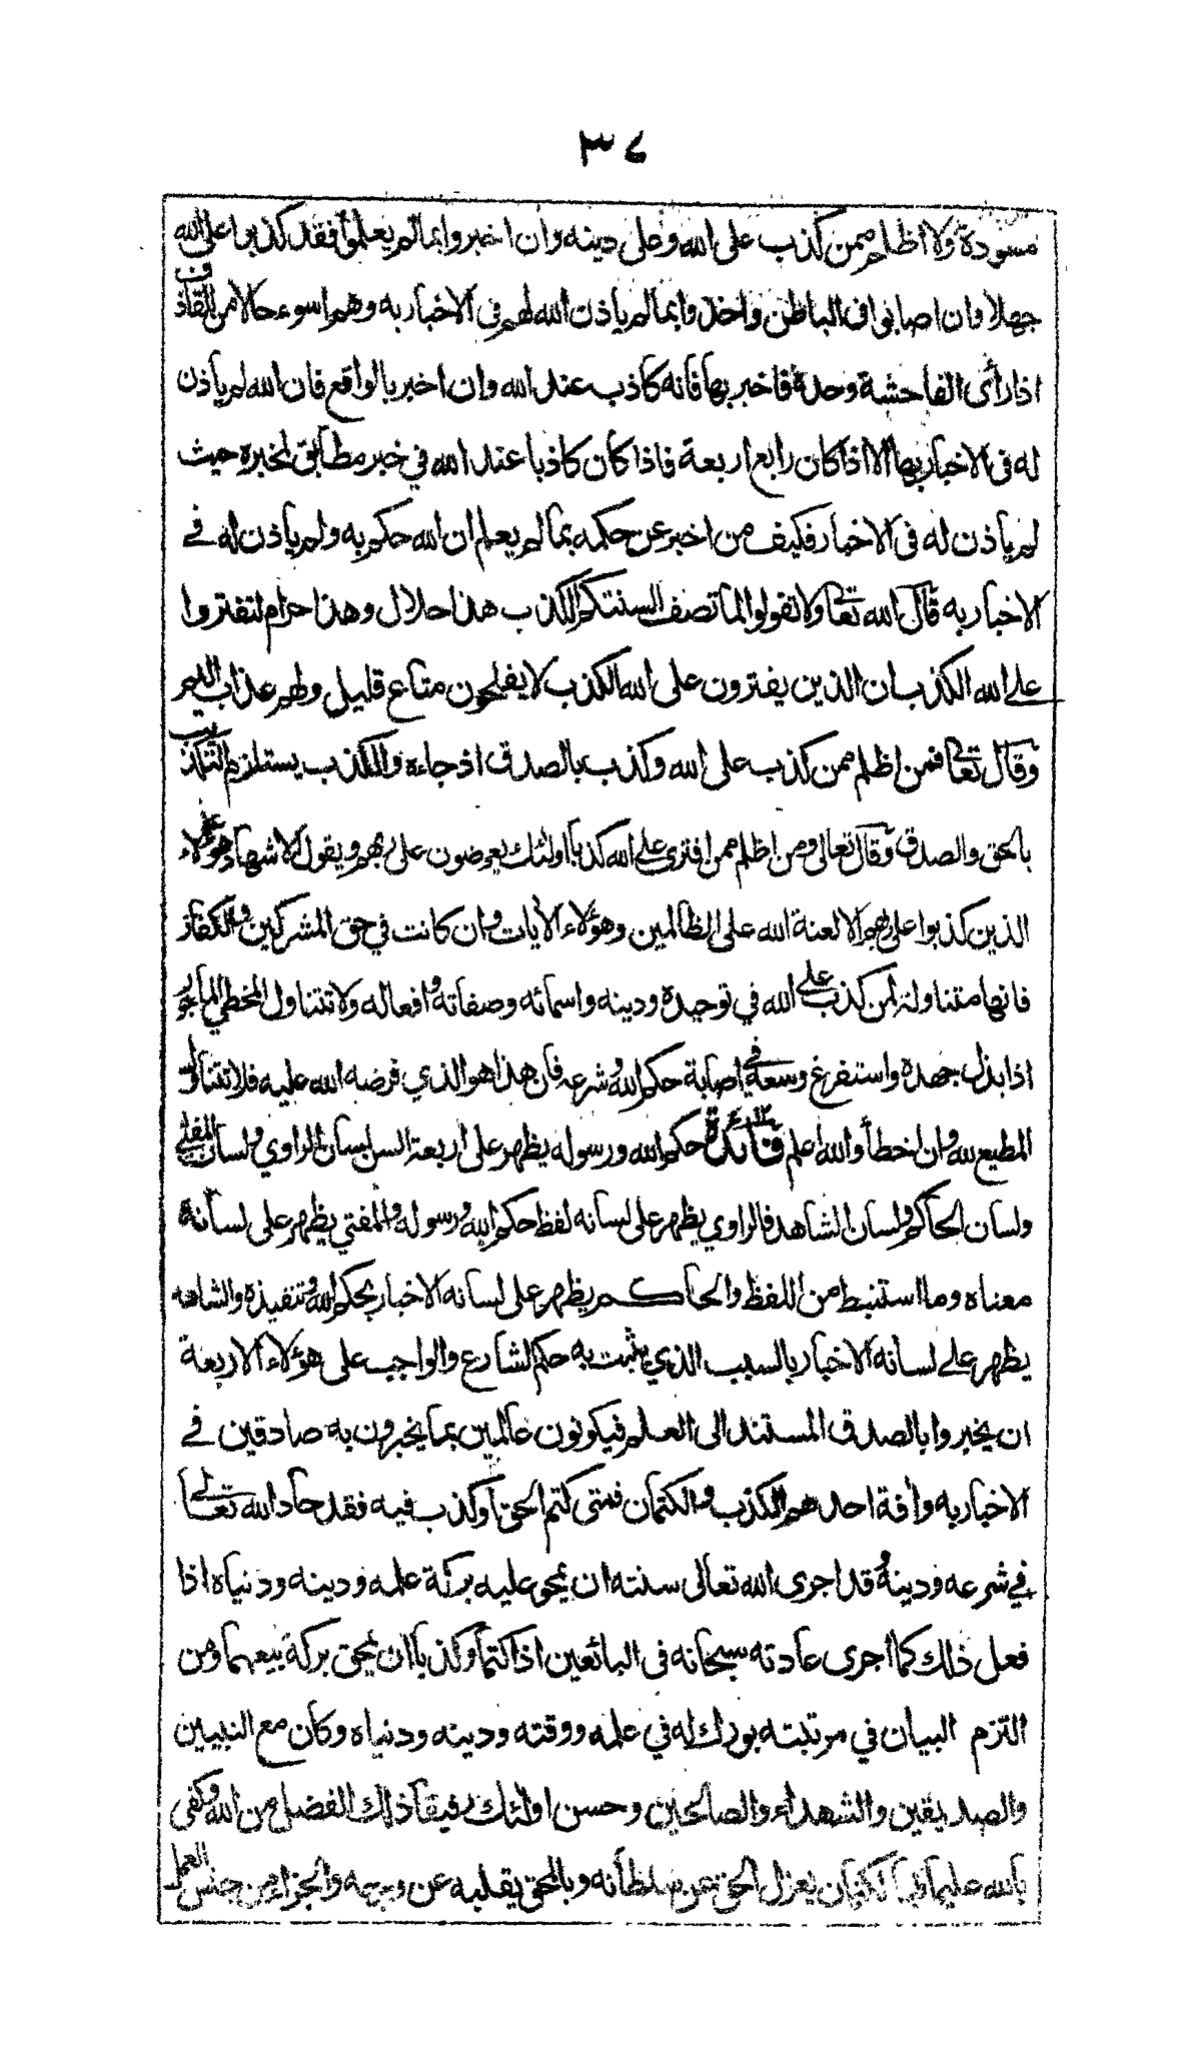 ٣٤
مسودة ولا اظلم ممن كذب على الله وعلى دينه وان اخبروا بما لم يعلموا فقد كذبوا على الله
جهلا وان اصابوا فى الباطن واخذوا بما لم ياذن الله لهم فى الاخبار به وهم اسوء حالا من القاذف
اذا رأى الفاحشة وحدة فاخبر بها فانه كاذب عند الله وان اخبر بالواقع فان الله لم ياذن
له فى الاخبار بها الا اذا كان رابع اربعة فاذا كان كاذبا عند الله في خبر مطابق لخبره حيث
لم ياذن له فى الاخبار فكيف من اخبر عن حكمه بما لم يعلم ان الله حكم به ولم ياذن له فے
الاخبار به قال الله تعالى ولا تقولوا لما تصف السنتكم الكذب هذا حلال وهذا حرام لتفتروا
على الله الكذب ان الذين يفترون على الله الكذب لا يفلحون متاع قليل ولهم عذاب اليم
وقال تعالى فمن اظلم ممن كذب على الله وكذب بالصدق اذ جاءه والكذب يستلزم التكذيب
بالحق والصدق وقال تعالى ومن اظلم ممن افترى على الله كذبا اولئك يعرضون على ربهم ويقول الاشهاد هؤلاء
الذين كذبوا على ربهم الا لعنة الله على الظالمين وهؤلاء الأيات وان كانت في حق المشركين والكفار
فانها متناولة لمن كذب على الله في توحيده ودينه واسمائه وصفاته وافعاله ولا تتناول المخطي المأجور
اذا بذل جهده واستفرغ وسعه في اصابة حكم الله وشرعه فان هذا هو الذي فرضه الله عليه فلا تتناول
المطيع لله وان اخطأ والله اعلم فائدة حكم الله ورسوله يظهر على اربعة السن لسان الراوي ولسان المفتي
ولسان الحاكم ولسان الشاهد فالراوي يظهر على لسانه لفظ حكم الله ورسوله والمفتي يظهر على لسانه
معناه وما استنبط من اللفظ والحاكم يظهر على لسانه الاخبار بحكم الله وتنفيذه والشاهد
يظهر على لسانه الاخبار بالسبب الذي يثبت به حكم الشارع والواجب على هؤلاء الاربعة
ان يخبروا بالصدق المستند الى العلم فيكونون عالمين بما يخبرون به صادقين فے
الاخبار به وأفة احدهم الكذب والكتمان فمتى كتم الحق او كذب فيه فقد حاد الله تعالى
في شرعه ودينه وقد اجرى الله تعالى سنته ان يمحق عليه بركة علمه ودينه ودنياه اذا
فعل ذلك كما اجرى عادته سبحانه فى البائعين اذا كتما وكذبا ان يمحق بركة بيعهما ومن
التزم البيان في مرتبته بورك له في علمه ووقته ودينه ودنياه وكان مع النبيين
والصديقين والشهداء والصالحين وحسن اولئك رفيقا ذلك الفضل من الله وكفى
بالله عليما فبالكتمان يعزل الحق عن سلطانه وبالحق يقلبه عن وجهه والجزاء من جنس العمل